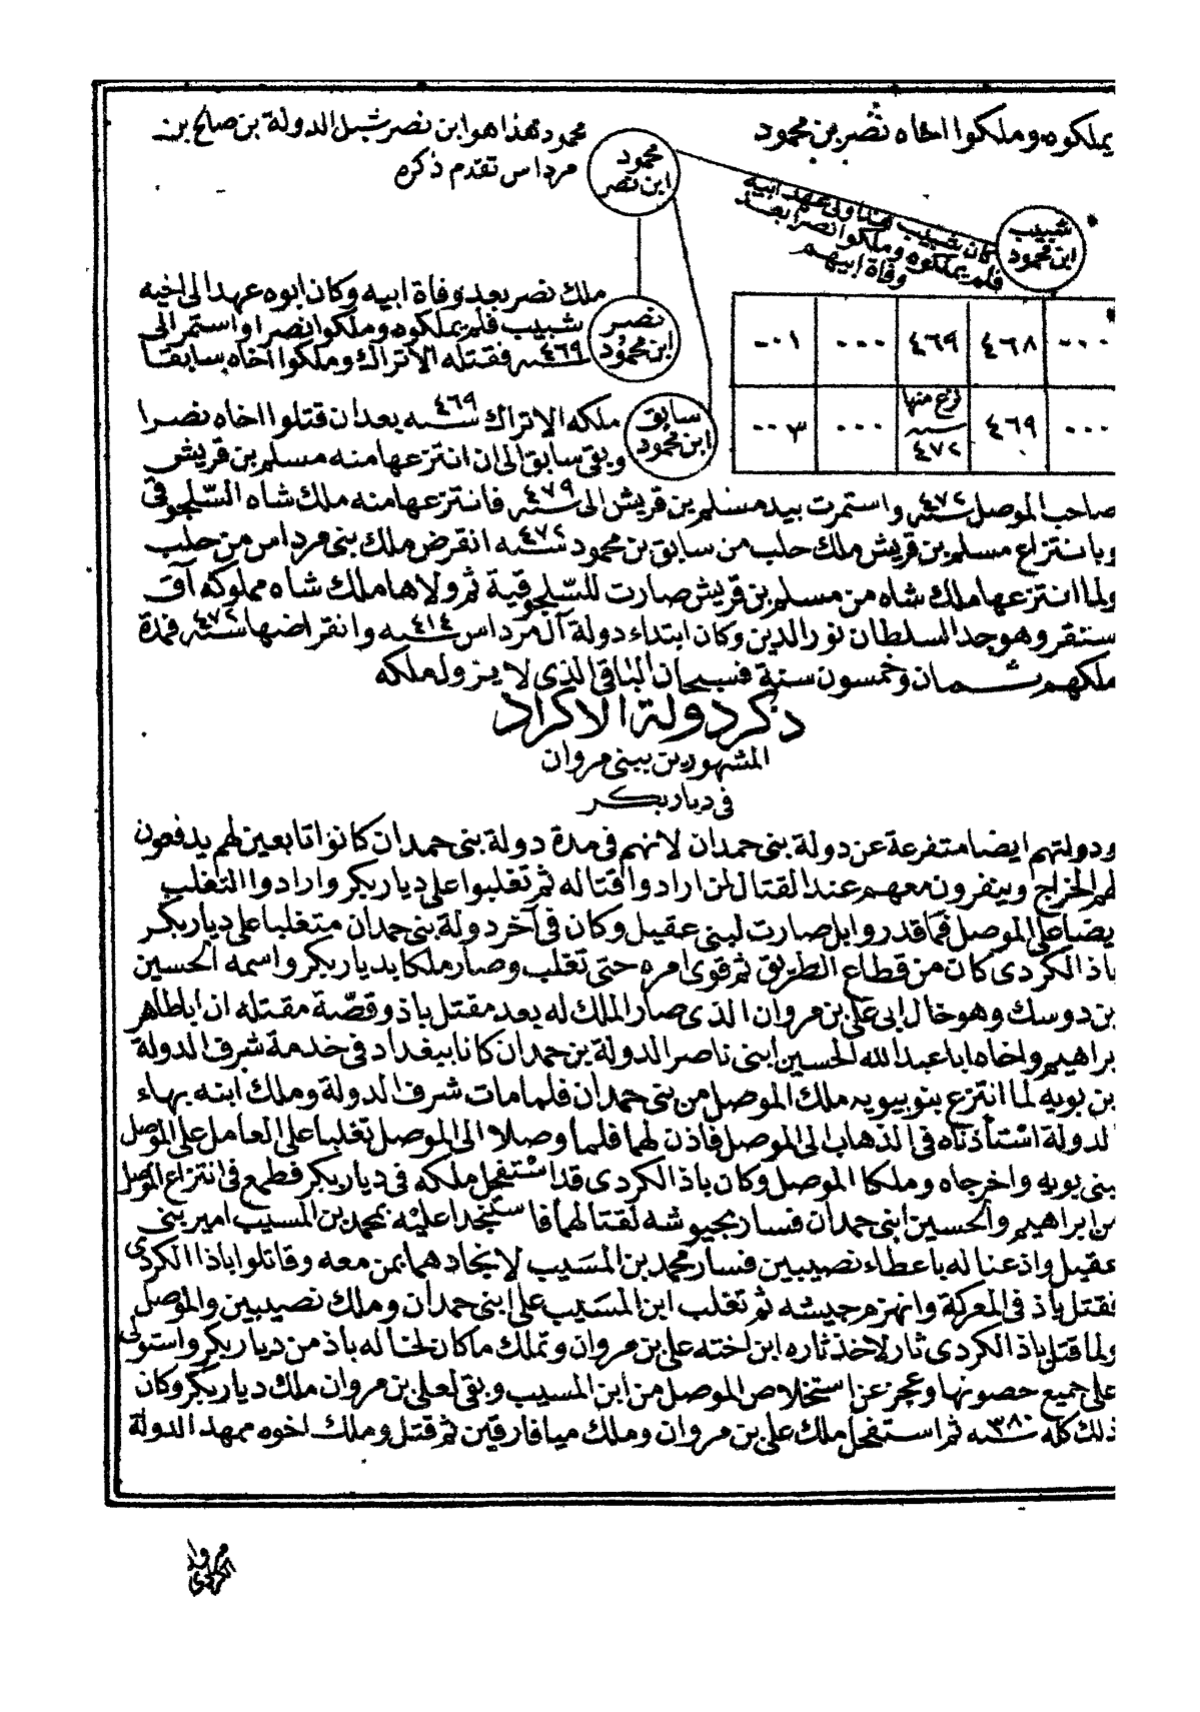 يملكوه وملكوا اخاه نصر بن محمود
محمود هذا هو ابن نصر شبل الدولة بن صالح بن
مرداس تقدم ذكره
محمود
ابن نصر
شبيب
ابن محمود
كان شبيب هذا ولى عهد ابيه
فلم يملكوه وملكوا نصرا بعد
وفاة ابيهم
ملك نصر بعد وفاة ابيه وكان ابوه عهد الى اخيه
شبيب فلم يملكوه وملكوا نصرا واستمر الى
سنه ٤٦٩ فقتله الاتراك وملكوا اخاه سابقا
نصر
ابن محمود
٠٠٠ ٤٦٨ ٤٦٩ ٠٠٠ ٠٠١
٠٠٠ ٤٦٩ نزع منها سنه ٤٧٢ ٠٠٠ ٠٠٣
سابق
ابن محمود
ملكه الاتراك سنه ٤٦٩ بعد ان قتلوا اخاه نصرا
وبقى سابق الى ان انتزعها منه مسلم بن قريش
صاحب الموصل سنه ٤٧٢ واستمرت بيد مسلم بن قريش الى سنه ٤٧٩ فانتزعها منه ملك شاه السلجوقى
وبانتزاع مسلم بن قريش ملك حلب من سابق بن محمود سنه ٤٧٢ انقرض ملك بنى مرداس من حلب
ولما انتزعها ملك شاه من مسلم بن قريش صارت للسلجوقية ثم ولاها ملك شاه مملوكه آق
سنقر وهو جد السلطان نور الدين وكان ابتداء دولة آل مرداس سنه ٤١٤ وانقراضها سنه ٤٧٢ فمدة
ملكهم ثمان وخمسون سنة فسبحان الباقى الذى لا يزول ملكه
ذكر دولة الاكراد
المشهورين ببنى مروان
فى ديار بكر
ودولتهم ايضا متفرعة عن دولة بنى حمدان لانهم فى مدة دولة بنى حمدان كانوا تابعين لهم يدفعون
لهم الخراج وينفرون معهم عند القتال لمن ارادوا قتاله ثم تغلبوا على ديار بكر وارادوا التغلب
يضا على الموصل فما قدروا بل صارت لبنى عقيل وكان فى آخر دولة بنى حمدان متغلبا على ديار بكر
باذ الكردى كان من قطاع الطريق ثم قوى امره حتى تغلب وصار ملكا بديار بكر واسمه الحسين
بن دوسك وهو خال ابى على بن مروان الذى صار الملك له بعد مقتل باذ وقصّة مقتله ان اباطاهر
براهيم واخاه ابا عبد الله الحسين ابنى ناصر الدولة بن حمدان كانا ببغداد فى خدمة شرف الدولة
بن بويه لما انتزع بنو بويه ملك الموصل من بنى حمدان فلما مات شرف الدولة وملك ابنه بهاء
لدولة استأذناه فى الذهاب الى الموصل فاذن لهما فلما وصلا الى الموصل تغلبا على العامل على الموصل
بنى بويه واخرجاه وملكا الموصل وكان باذ الكردى قد استفحل ملكه فى ديار بكر فطمع فى انتزاع الموصل
من ابراهيم والحسين ابنى حمدان فسار بجيوشه لقتالهما فاستنجدا عليه بمحمد بن المسيب امير بنى
عقيل واذعنا له باعطاء نصيبين فسار محمد بن المسيب لانجادهما بمن معه وقاتلوا باذا الكردى
فقتل باذ فى المعركة وانهزم جيشه ثم تغلب ابن المسيب على ابنى حمدان وملك نصيبين والموصل
ولما قتل باذ الكردى ثار لاخذ ثاره ابن اخته على بن مروان وتملك ما كان لخاله باذ من ديار بكر واستولى
على جميع حصونها وعجز عن استخلاص الموصل من ابن المسيب وبقى لعلى بن مروان ملك ديار بكر وكان
ذلك كله سنه ٣٨٠ ثم استفحل ملك على بن مروان وملك ميافارقين ثم قتل وملك اخوه ممهد الدولة
مروان
الكردى